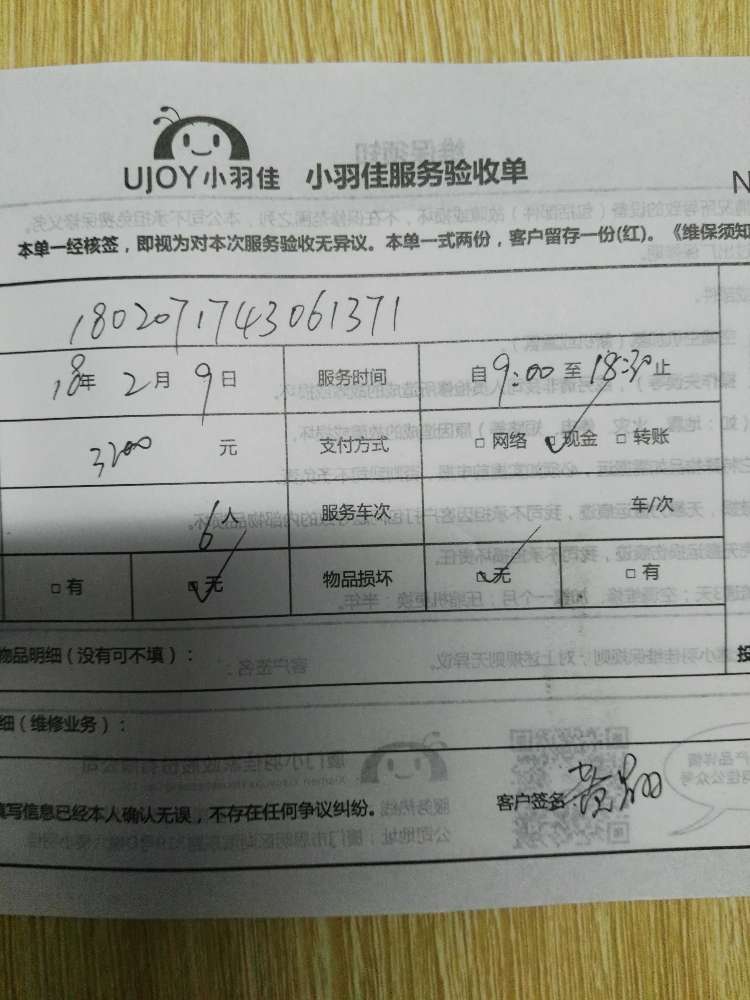 UJOY小羽佳 小羽佳服务验收单
N
本单一经核签，即视为对本次服务验收无异议。本单一式两份，客户留存一份(红)。《维保须知
1802071743061371
18年 2月 9日 服务时间 自9:00至18:30止
3200 元 支付方式 □网络 □现金 □转账
6人 服务车次 车/次
□有 □无 物品损坏 □无 □有
物品明细（没有可不填）： 按
细（维修业务）：
填写信息已经本人确认无误，不存在任何争议纠纷。 客户签名